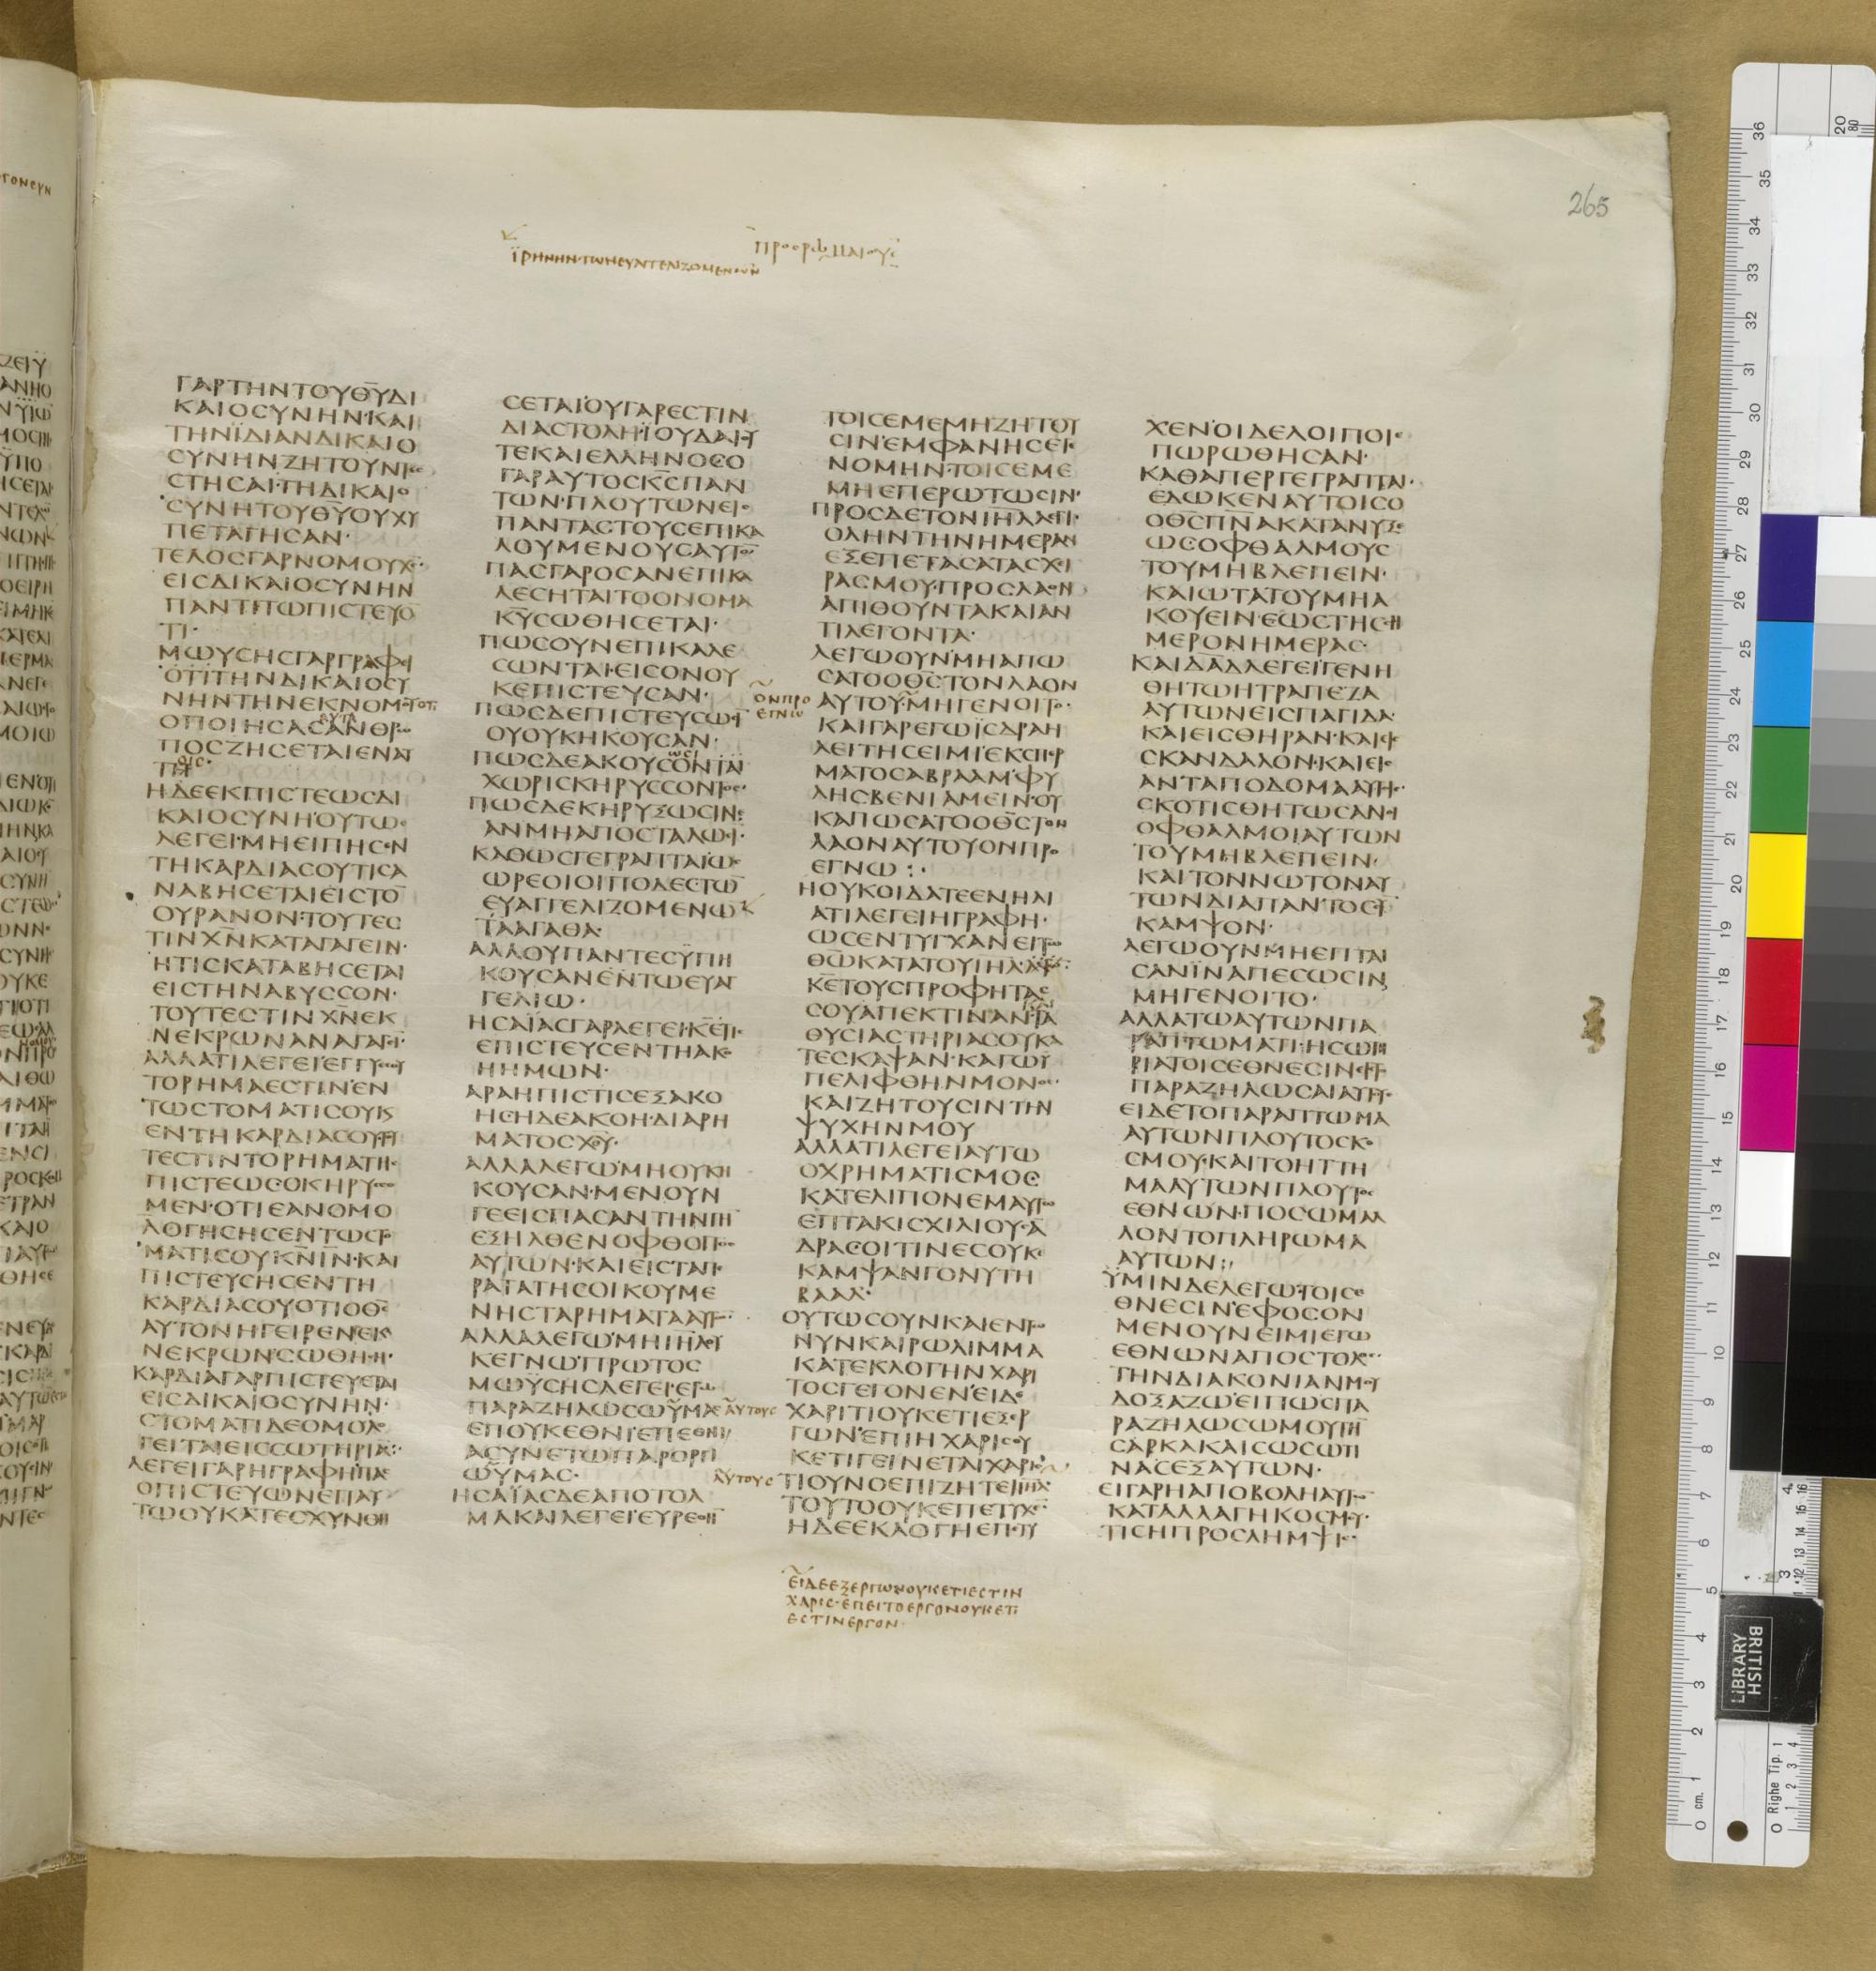 265
ΠΡΟΣΡΩΜΑΙΟΥΣ
ΪΡΗΝΗΝ·ΤΩΝΕΥΑΓΓΕΛΙΖΟΜΕΝΩΝ
ΓΑΡΤΗΝΤΟΥΘΥΔΙ
ΚΑΙΟϹΥΝΗΝ·ΚΑΙ
ΤΗΝΪΔΙΑΝΔΙΚΑΙΟ
ϹΥΝΗΝΖΗΤΟΥΝΤΕϹ
ϹΤΗϹΑΙ·ΤΗΔΙΚΑΙΟ
ϹΥΝΗΤΟΥΘΥΟΥΧΥ
ΠΕΤΑΓΗϹΑΝ·
ΤΕΛΟϹΓΑΡΝΟΜΟΥΧϹ
ΕΙϹΔΙΚΑΙΟϹΥΝΗΝ
ΠΑΝΤΙΤΩΠΙϹΤΕΥΟ
ΤΙ·
ΜΩΥϹΗϹΓΑΡΓΡΑΦΕΙ
ΟΤΙΤΗΝΔΙΚΑΙΟϹΥ
ΝΗΝΤΗΝΕΚΝΟΜΟΥ
ΟΠΟΙΗϹΑϹΑΝΘΡΩ
ΠΟϹΖΗϹΕΤΑΙΕΝΑΥ
ΤΗ
ΗΔΕΕΚΠΙϹΤΕΩϹΔΙ
ΚΑΙΟϹΥΝΗΟΥΤΩϹ
ΛΕΓΕΙ·ΜΗΕΙΠΗϹΕΝ
ΤΗΚΑΡΔΙΑϹΟΥΤΙϹΑ
ΝΑΒΗϹΕΤΑΙΕΙϹΤΟ
ΟΥΡΑΝΟΝ·ΤΟΥΤΕϹ
ΤΙΝΧΝΚΑΤΑΓΑΓΕΙΝ·
ΗΤΙϹΚΑΤΑΒΗϹΕΤΑΙ
ΕΙϹΤΗΝΑΒΥϹϹΟΝ·
ΤΟΥΤΕϹΤΙΝΧΝΕΚ
ΝΕΚΡΩΝΑΝΑΓΑΓΕΙ
ΑΛΛΑΤΙΛΕΓΕΙΕΓΓΥϹϹΟΥ
ΤΟΡΗΜΑΕϹΤΙΝΕΝ
ΤΩϹΤΟΜΑΤΙϹΟΥΚϹ
ΕΝΤΗΚΑΡΔΙΑϹΟΥΤΥ
ΤΕϹΤΙΝΤΟΡΗΜΑΤΗϹ
ΠΙϹΤΕΩϹΟΚΗΡΥϹϹΟ
ΜΕΝ·ΟΤΙΕΑΝΟΜΟ
ΛΟΓΗϹΗϹΕΝΤΩϹΤΟ
ΜΑΤΙϹΟΥΚΝΙΝ·ΚΑΙ
ΠΙϹΤΕΥϹΗϹΕΝΤΗ
ΚΑΡΔΙΑϹΟΥΟΤΙΟΘϹ
ΑΥΤΟΝΗΓΕΙΡΕΝΕΚ
ΝΕΚΡΩΝϹΩΘΗϹΗ·
ΚΑΡΔΙΑΓΑΡΠΙϹΤΕΥΕΤΑΙ
ΕΙϹΔΙΚΑΙΟϹΥΝΗΝ·
ϹΤΟΜΑΤΙΔΕΟΜΟΛΟ
ΓΕΙΤΑΙΕΙϹϹΩΤΗΡΙΑ
ΛΕΓΕΙΓΑΡΗΓΡΑΦΗΠΑϹ
ΟΠΙϹΤΕΥΩΝΕΠΑΥ
ΤΩΟΥΚΑΤΕϹΧΥΝΘΗ
ϹΕΤΑΙΟΥΓΑΡΕϹΤΙΝ
ΔΙΑϹΤΟΛΗ·ΪΟΥΔΑΙΟΥ
ΤΕΚΑΙΕΛΛΗΝΟϹΟ
ΓΑΡΑΥΤΟϹΚϹΠΑΝ
ΤΩΝ·ΠΛΟΥΤΩΝΕΙϹ
ΠΑΝΤΑϹΤΟΥϹΕΠΙΚΑ
ΛΟΥΜΕΝΟΥϹΑΥΤΟ
ΠΑϹΓΑΡΟϹΑΝΕΠΙΚΑ
ΛΕϹΗΤΑΙΤΟΟΝΟΜΑ
ΚΥϹΩΘΗϹΕΤΑΙ·
ΠΩϹΟΥΝΕΠΙΚΑΛΕ
ϹΩΝΤΑΙ·ΕΙϹΟΝΟΥ
ΚΕΠΙϹΤΕΥϹΑΝ·
ΠΩϹΔΕΠΙϹΤΕΥϹΩϹΙ
ΟΥΟΥΚΗΚΟΥϹΑΝ·
ΠΩϹΔΕΑΚΟΥϹΟΝΤΑΙ
ΧΩΡΙϹΚΗΡΥϹϹΟΝΤΟϹ
ΠΩϹΔΕΚΗΡΥΞΩϹΙΝ
ΑΝΜΗΑΠΟϹΤΑΛΩϹΙ·
ΚΑΘΩϹΓΕΓΡΑΠΤΑΙΩϹ
ΩΡΕΟΙΟΙΠΟΔΕϹΤΩ
ΕΥΑΓΓΕΛΙΖΟΜΕΝΩ
ΤΑΑΓΑΘΑ·
ΑΛΛΟΥΠΑΝΤΕϹΫΠΗ
ΚΟΥϹΑΝΕΝΤΩΕΥΑΓ
ΓΕΛΙΩ·
ΗϹΑΪΑϹΓΑΡΛΕΓΕΙ·ΚΕΤΙϹ
ΕΠΙϹΤΕΥϹΕΝΤΗΑΚΟ
ΗΗΜΩΝ·
ΑΡΑΗΠΙϹΤΙϹΕΞΑΚΟ
ΗϹ·ΗΔΕΑΚΟΗΔΙΑΡΗ
ΜΑΤΟϹΧΥ·
ΑΛΛΑΛΕΓΩΜΗΟΥΚΗ
ΚΟΥϹΑΝ·ΜΕΝΟΥΝ
ΓΕΕΙϹΠΑϹΑΝΤΗΝΓΗ
ΕΞΗΛΘΕΝΟΦΘΟΓΓΟϹ
ΑΥΤΩΝ·ΚΑΙΕΙϹΤΑΠΕ
ΡΑΤΑΤΗϹΟΙΚΟΥΜΕ
ΝΗϹΤΑΡΗΜΑΤΑΑΥΤΩ
ΑΛΛΑΛΕΓΩΜΗΙΗΛΟΥ
ΚΕΓΝΩΠΡΩΤΟϹ
ΜΩΫϹΗϹΛΕΓΕΙ·ΕΓΩ
ΠΑΡΑΖΗΛΩϹΩΫΜΑϹ
ΕΠΟΥΚΕΘΝΙΕΠΕΘΝΙ
ΑϹΥΝΕΤΩΠΑΡΟΡΓΙ
ΩΫΜΑϹ·
ΗϹΑΪΑϹΔΕΑΠΟΤΟΛ
ΜΑΚΑΙΛΕΓΕΙ·ΕΥΡΕΘΗ
ΤΟΙϹΕΜΕΜΗΖΗΤΟΥ
ϹΙΝΕΜΦΑΝΗϹΕΓΕ
ΝΟΜΗΝ·ΤΟΙϹΕΜΕ
ΜΗΕΠΕΡΩΤΩϹΙΝ·
ΠΡΟϹΔΕΤΟΝΙΗΛΛΕΓΙ·
ΟΛΗΝΤΗΝΗΜΕΡΑΝ
ΕΞΕΠΕΤΑϹΑΤΑϹΧΙ
ΡΑϹΜΟΥ·ΠΡΟϹΛΑΟΝ
ΑΠΙΘΟΥΝΤΑΚΑΙΑΝ
ΤΙΛΕΓΟΝΤΑ·
ΛΕΓΩΟΥΝΜΗΑΠΩ
ϹΑΤΟΟΘϹΤΟΝΛΑΟΝ
ΟΝΠΡΟ
ΕΓΝΩ
ΑΥΤΟΥ·ΜΗΓΕΝΟΙΤΟ·
ΚΑΙΓΑΡΕΓΩΪϹΔΡΑΗ
ΛΕΙΤΗϹΕΙΜΙΕΚϹΠΕΡ
ΜΑΤΟϹΑΒΡΑΑΜ·ΦΥ
ΛΗϹΒΕΝΙΑΜΕΙΝ·ΟΥ
ΚΑΠΩϹΑΤΟΟΘϹΤΟΝ
ΛΑΟΝΑΥΤΟΥΟΝΠΡΟ
ΕΓΝΩ:·
ΗΟΥΚΟΙΔΑΤΕΕΝΗΛΙ
ΑΤΙΛΕΓΕΙΗΓΡΑΦΗ·
ΩϹΕΝΤΥΓΧΑΝΕΙΤΩ
ΘΩΚΑΤΑΤΟΥΙΗΛ
ΚΕΤΟΥϹΠΡΟΦΗΤΑϹ
ϹΟΥΑΠΕΚΤΙΝΑΝΤΑ
ΘΥϹΙΑϹΤΗΡΙΑϹΟΥΚΑ
ΤΕϹΚΑΨΑΝ·ΚΑΓΩΫ
ΠΕΛΙΦΘΗΝΜΟΝΟϹ·
ΚΑΙΖΗΤΟΥϹΙΝΤΗΝ
ΨΥΧΗΝΜΟΥ
ΑΛΛΑΤΙΛΕΓΕΙΑΥΤΩ
ΟΧΡΗΜΑΤΙϹΜΟϹ
ΚΑΤΕΛΙΠΟΝΕΜΑΥΤΩ
ΕΠΤΑΚΙϹΧΙΛΙΟΥϹΑ
ΔΡΑϹΟΙΤΙΝΕϹΟΥΚΕ
ΚΑΜΨΑΝΓΟΝΥΤΗ
ΒΑΑΛ·
ΟΥΤΩϹΟΥΝΚΑΙΕΝΤΩ
ΝΥΝΚΑΙΡΩΛΙΜΜΑ
ΚΑΤΕΚΛΟΓΗΝΧΑΡΙ
ΤΟϹΓΕΓΟΝΕΝ·ΕΙΔΕ
ΑΥΤΟΥϹ
ΧΑΡΙΤΙΟΥΚΕΤΙΕΞΕΡ
ΓΩΝ·ΕΠΙΗΧΑΡΙϹΟΥ
ΚΕΤΙΓΕΙΝΕΤΑΙΧΑΡΙϹ
ΑΥΤΟΥϹ
ΤΙΟΥΝΟΕΠΙΖΗΤΕΙΙΗΛ
ΤΟΥΤΟΟΥΚΕΠΕΤΥΧΕ
ΗΔΕΕΚΛΟΓΗΕΠΕΤΥ
ΕΙΔΕΕΞΕΡΓΩΝΟΥΚΕΤΙΕϹΤΙΝ
ΧΑΡΙϹ·ΕΠΕΙΤΟΕΡΓΟΝΟΥΚΕΤΙ
ΕϹΤΙΝΕΡΓΟΝ
ΧΕΝ·ΟΙΔΕΛΟΙΠΟΙΕ
ΠΩΡΩΘΗϹΑΝ·
ΚΑΘΑΠΕΡΓΕΓΡΑΠΤΑΙ·
ΕΔΩΚΕΝΑΥΤΟΙϹΟ
ΟΘϹΠΝΑΚΑΤΑΝΥΞΕ
ΩϹΟΦΘΑΛΜΟΥϹ
ΤΟΥΜΗΒΛΕΠΕΙΝ·
ΚΑΙΩΤΑΤΟΥΜΗΑ
ΚΟΥΕΙΝ·ΕΩϹΤΗϹϹΗ
ΜΕΡΟΝΗΜΕΡΑϹ·
ΚΑΙΔΑΔΛΕΓΕΙΓΕΝΗ
ΘΗΤΩΗΤΡΑΠΕΖΑ
ΑΥΤΩΝΕΙϹΠΑΓΙΔΑ
ΚΑΙΕΙϹΘΗΡΑΝ·ΚΑΙΕΙϹ
ϹΚΑΝΔΑΛΟΝ·ΚΑΙΕΙϹ
ΑΝΤΑΠΟΔΟΜΑΑΥΤΟΙϹ
ϹΚΟΤΙϹΘΗΤΩϹΑΝΟΙ
ΟΦΘΑΛΜΟΙΑΥΤΩΝ
ΤΟΥΜΗΒΛΕΠΕΙΝ·
ΚΑΙΤΟΝΝΩΤΟΝΑΥ
ΤΩΝΔΙΑΠΑΝΤΟϹϹΥ
ΚΑΜΨΟΝ·
ΛΕΓΩΟΥΝΜΗΕΠΤΑΙ
ϹΑΝΪΝΑΠΕϹΩϹΙΝ
ΜΗΓΕΝΟΙΤΟ·
ΑΛΛΑΤΩΑΥΤΩΝΠΑ
ΡΑΠΤΩΜΑΤΙ·ΗϹΩΤΗ
ΡΙΑΤΟΙϹΕΘΝΕϹΙΝΕΙϹΤΟ
ΠΑΡΑΖΗΛΩϹΑΙΑΥΤΟΥϹ
ΕΙΔΕΤΟΠΑΡΑΠΤΩΜΑ
ΑΥΤΩΝΠΛΟΥΤΟϹΚΟ
ϹΜΟΥ·ΚΑΙΤΟΗΤΤΗ
ΜΑΑΥΤΩΝΠΛΟΥΤΟϹ
ΕΘΝΩΝ·ΠΟϹΩΜΑΛ
ΛΟΝΤΟΠΛΗΡΩΜΑ
ΑΥΤΩΝ:
ΫΜΙΝΔΕΛΕΓΩΤΟΙϹΕ
ΘΝΕϹΙΝ·ΕΦΟϹΟΝ
ΜΕΝΟΥΝΕΙΜΙΕΓΩ
ΕΘΝΩΝΑΠΟϹΤΟΛΟϹ
ΤΗΝΔΙΑΚΟΝΙΑΝΜΟΥ
ΔΟΞΑΖΩΕΙΠΩϹΠΑ
ΡΑΖΗΛΩϹΩΜΟΥΤΗ
ϹΑΡΚΑΚΑΙϹΩϹΩΤΙ
ΝΑϹΕΞΑΥΤΩΝ·
ΕΙΓΑΡΗΑΠΟΒΟΛΗΑΥΤΩ
ΚΑΤΑΛΛΑΓΗΚΟϹΜΟΥ·
ΤΙϹΗΠΡΟϹΛΗΜΨΙϹ
BRITISH
LIBRARY